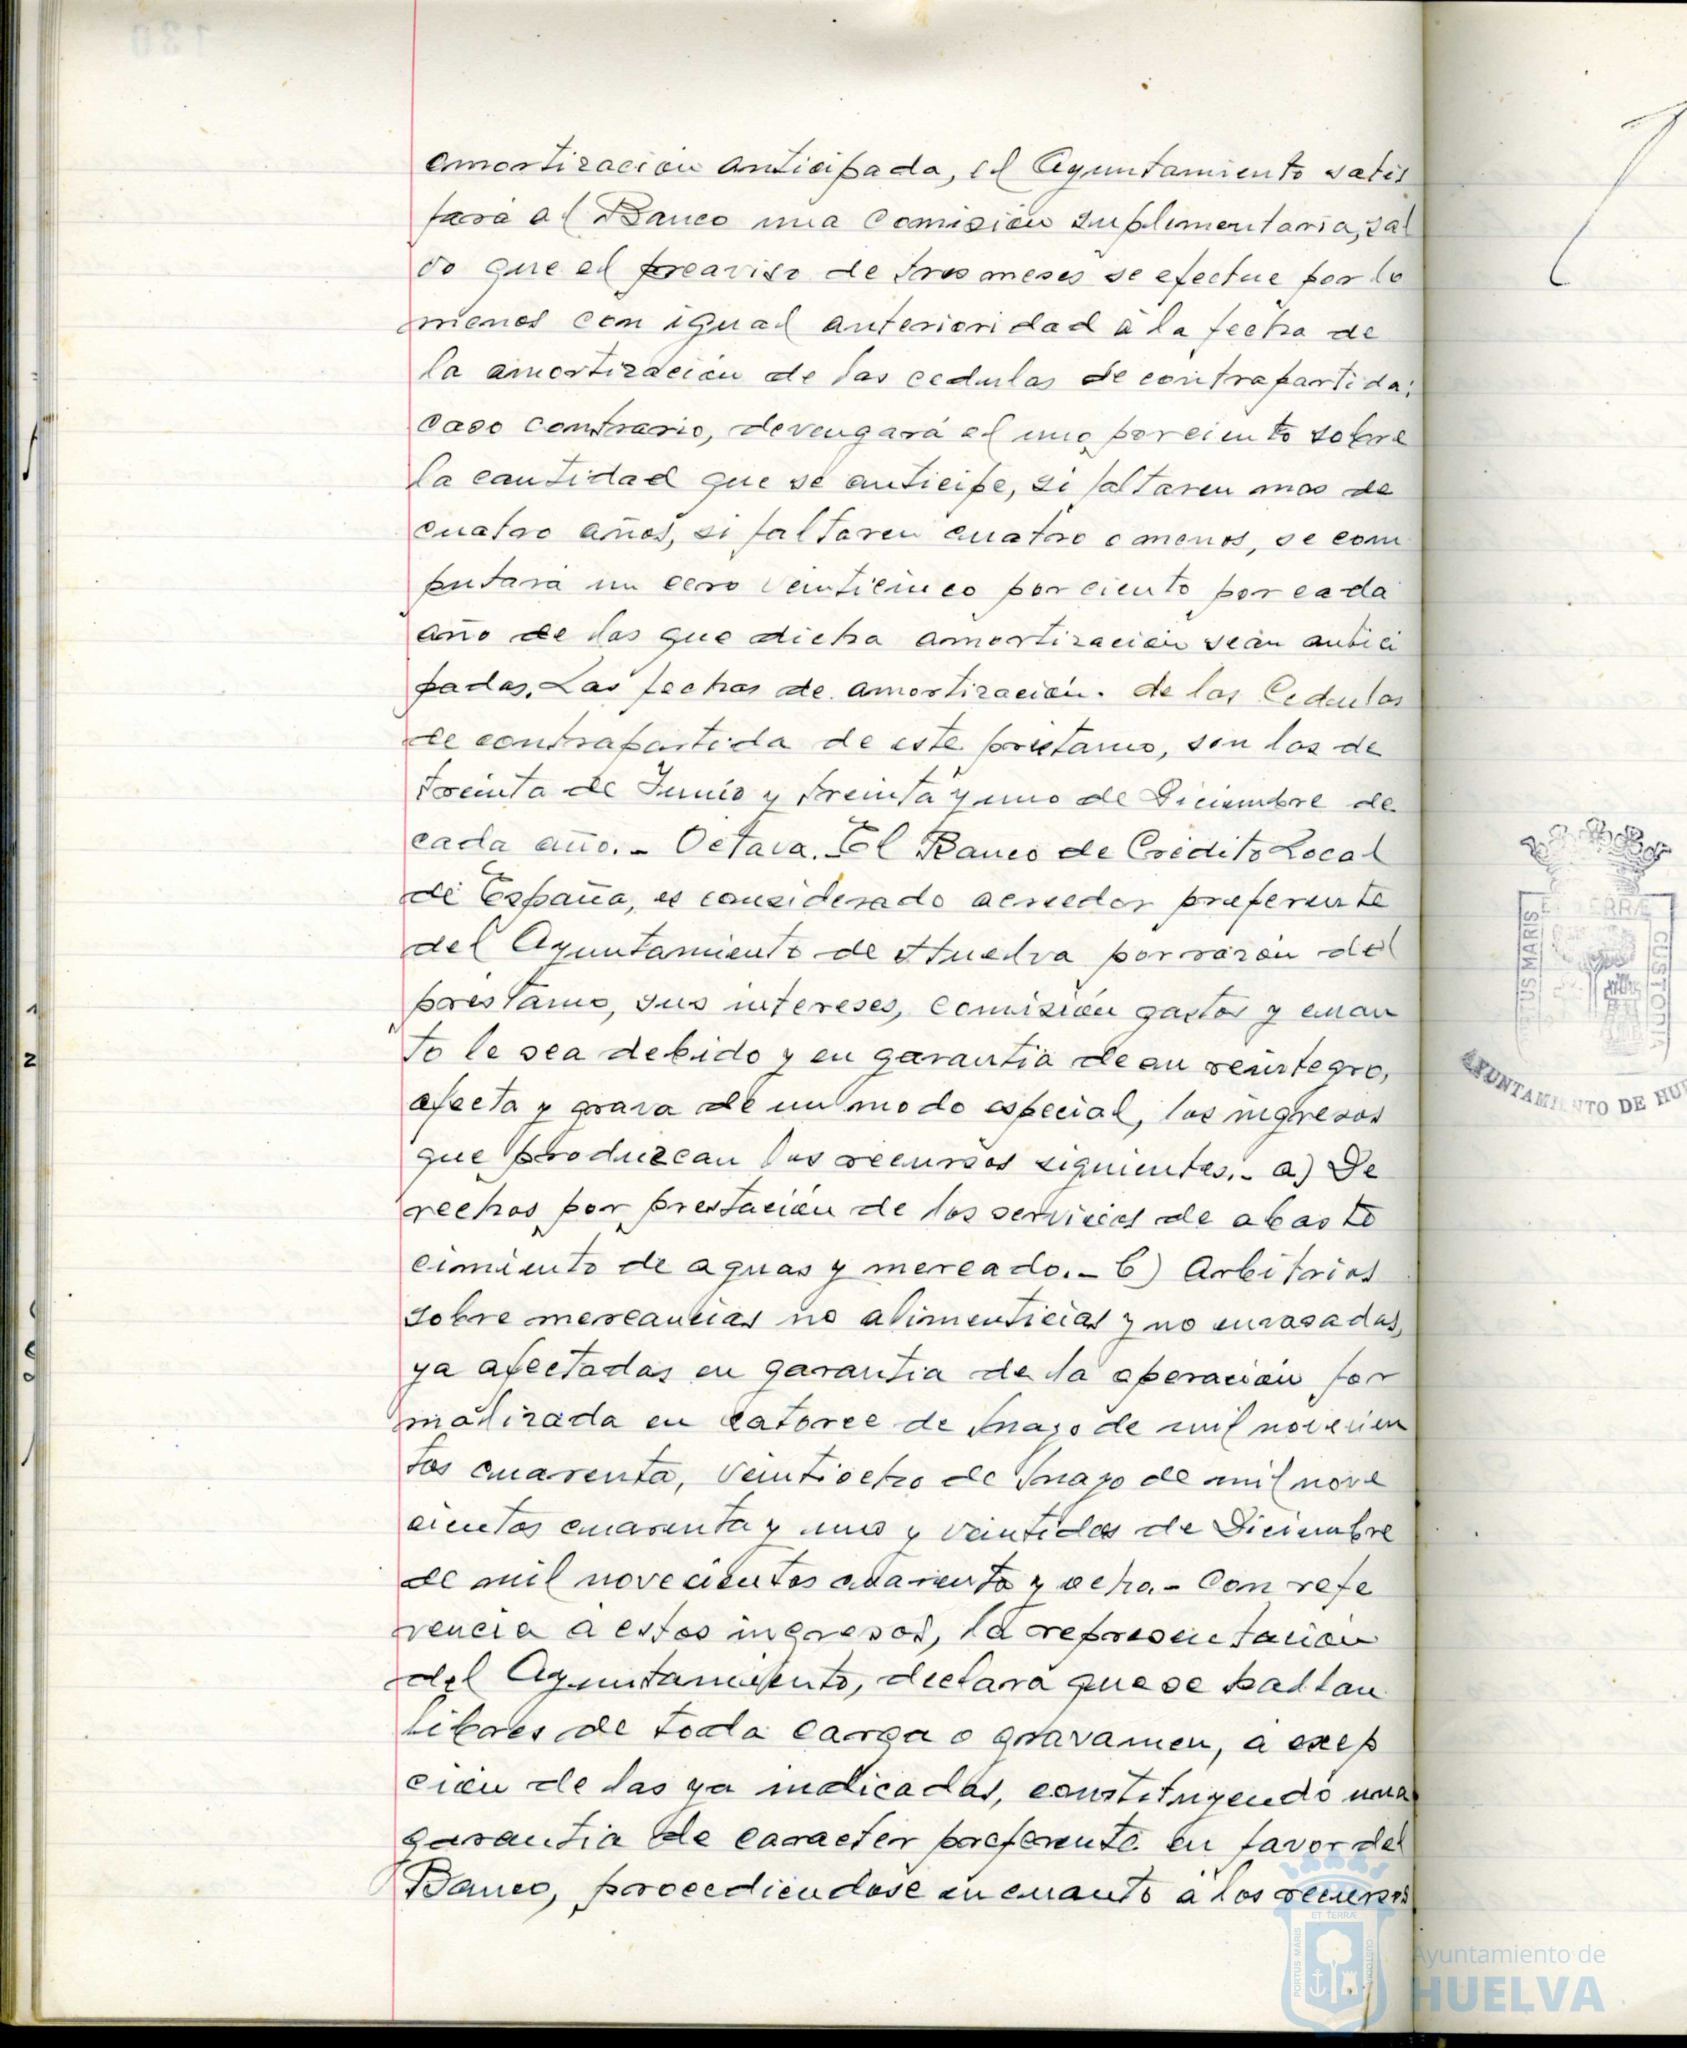 amortizacion anticipada, el Ayuntamiento satis
fará al Banco una comisión suplimentaria, sal
vo que el preaviso de tres meses se efectue por lo
menos con igual anterioridad á la fecha de
la amortización de las cedulas de contrapartida;
caso contrario, devengará el uno por ciento sobre
la cantidad que se anticipe, si faltaren mas de
cuatro años, si faltaren cuatro o menos, se com
putará un cero veinticinco por ciento por cada
año de los que dicha amortización sean antici
padas. Las fechas de amortización. de las Cedulas
de contrapartida de este préstamo, son las de
treinta de Junio y treinta y uno de Diciembre de
cada año.- Octava. El Banco de Crédito Local
de España, es considerado acreedor preferente
del Ayuntamiento de Huelva por razón del
préstamo, sus intereses, comisión gastos y cuan
to le sea debido y en garantia de su reintegro,
afecta y grava de un modo especial, los ingresos
que produzcan los recursos siguientes.- a) De
rechos por prestación de los servicios de abaste
cimiento de aguas y mercado.- b) Arbitrios
sobre mercancias no alimenticias y no envasadas,
ya afectadas en garantia de la operación for
malizada en catorce de Mayo de mil novecien
tos cuarenta, veintiocho de Mayo de mil nove
cientos cuarenta y uno y veintidos de Diciembre
de mil novecientos cuarenta y ocho.- Con refe
rencia á estos ingresos, la representación
del Ayuntamiento, declara que se hallan
libres de toda carga o gravamen, á exep
ción de las ya indicadas, constituyendo una
garantia de caracter preferente en favor del
Banco, procediendose en cuanto á los recursos
130
TERRÆ
US MARIS
CUSTODIA
AYUNTAMIENTO DE HU
ET TERRÆ
PORTUS MARIS
CUSTODIA
Ayuntamiento de
HUELVA